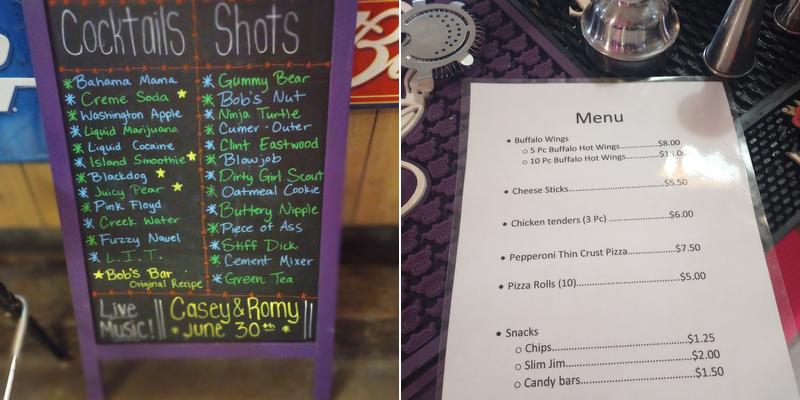 Cocktails
Bahama Mama
Creme Soda
Washington Apple
Liquid Marijuana
Liquid Cocaine
Island Smoothie
Blackdog
Juicy Pear
Pink Floyd
Creek Water
Fuzzy Navel
L.I.T.
Bob's Bar
Original Recipe
Shots
Gummy Bear
Bob's Nut
Ninja Turtle
Cumer-Outer
Clint Eastwood
Blowjob
Dirty Girl Scout
Oatmeal Cookie
Buttery Nipple
Piece of Ass
Stiff Dick
Cement Mixer
Green Tea
Live
Music!
Casey & Romy
June 30th
Menu
Buffalo Wings
5 Pc Buffalo Hot Wings..............$8.00
10 Pc Buffalo Hot Wings.............
Cheese Sticks.................................$5.50
Chicken tenders (3 Pc) ......................$6.00
Pepperoni Thin Crust Pizza...............$7.50
Pizza Rolls (10)................................$5.00
Snacks
Chips............................................$1.25
Slim Jim.......................................$2.00
Candy bars...................................$1.50